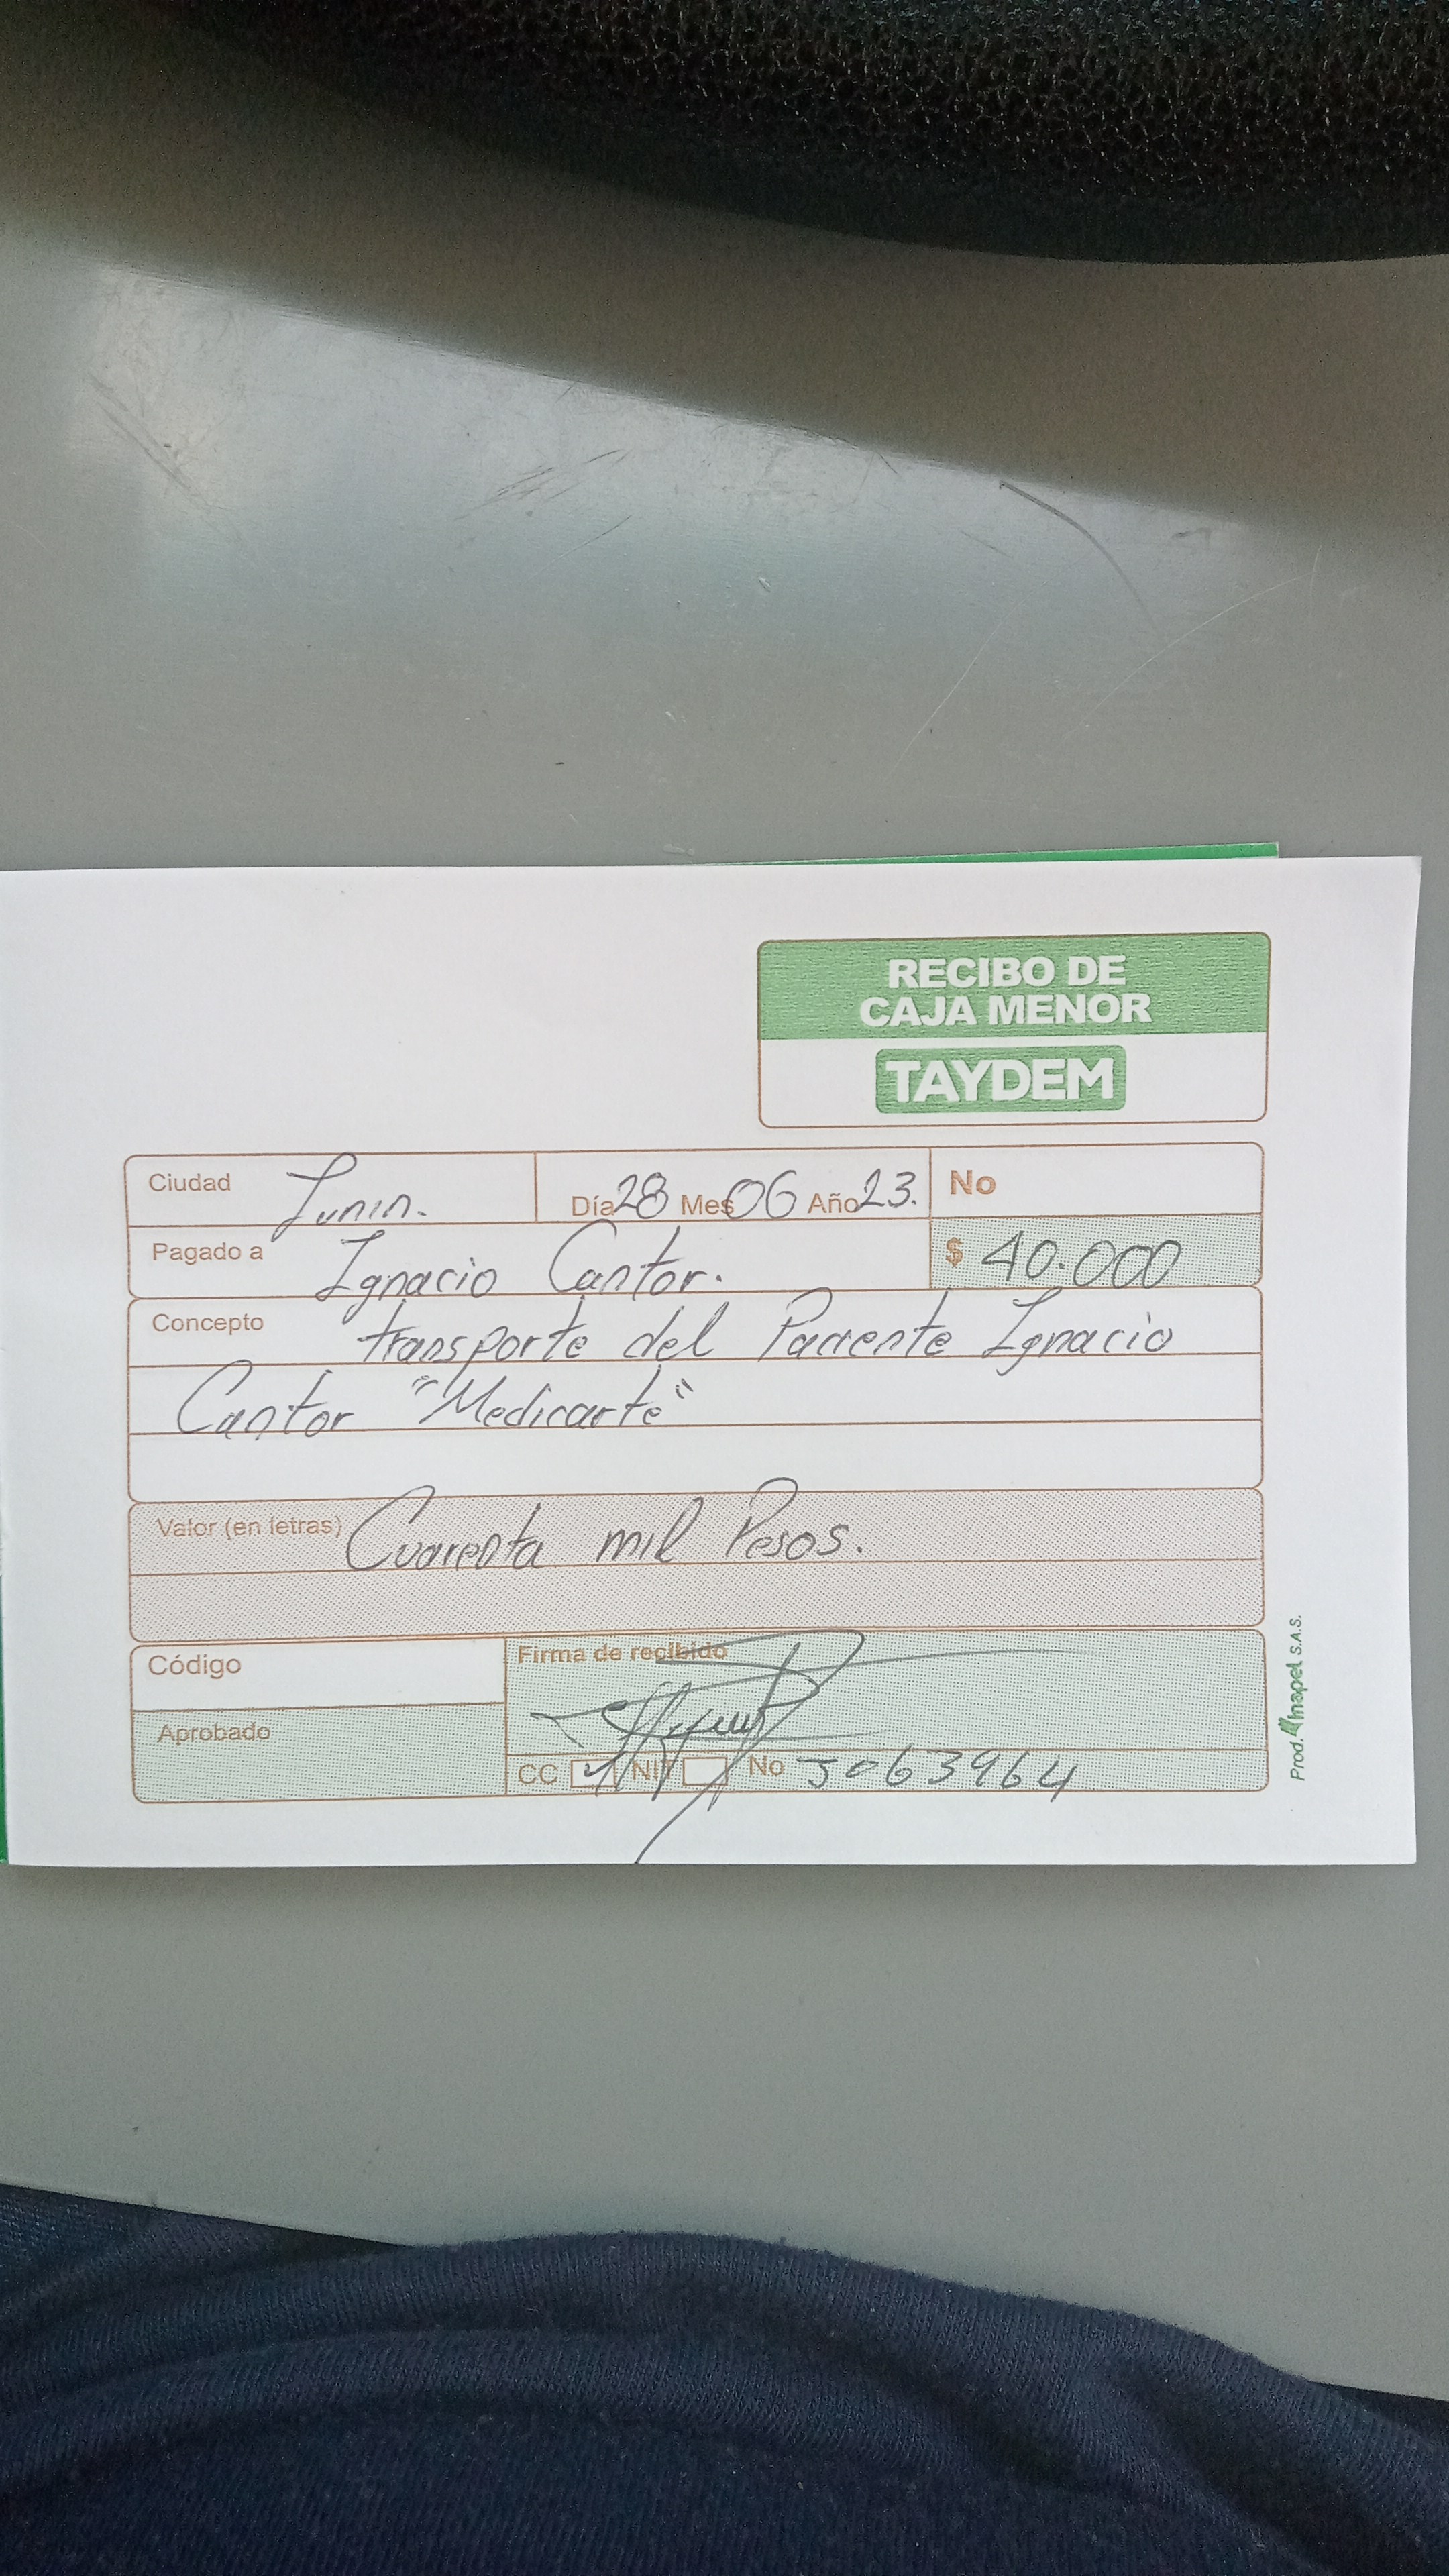 RECIBO DE
CAJA MENOR
TAYDEM
Ciudad Junin. Día 28 Mes 06 Año 23. No
Pagado a Ignacio Cantor. $ 40.000
Concepto transporte del Paciente Ignacio
Cantor "Medicarte"
Valor (en letras) Cuarenta mil Pesos.
Código
Firma de recibido
Aprobado
CC NIT No 3063964
Prod. Minapel S.A.S.